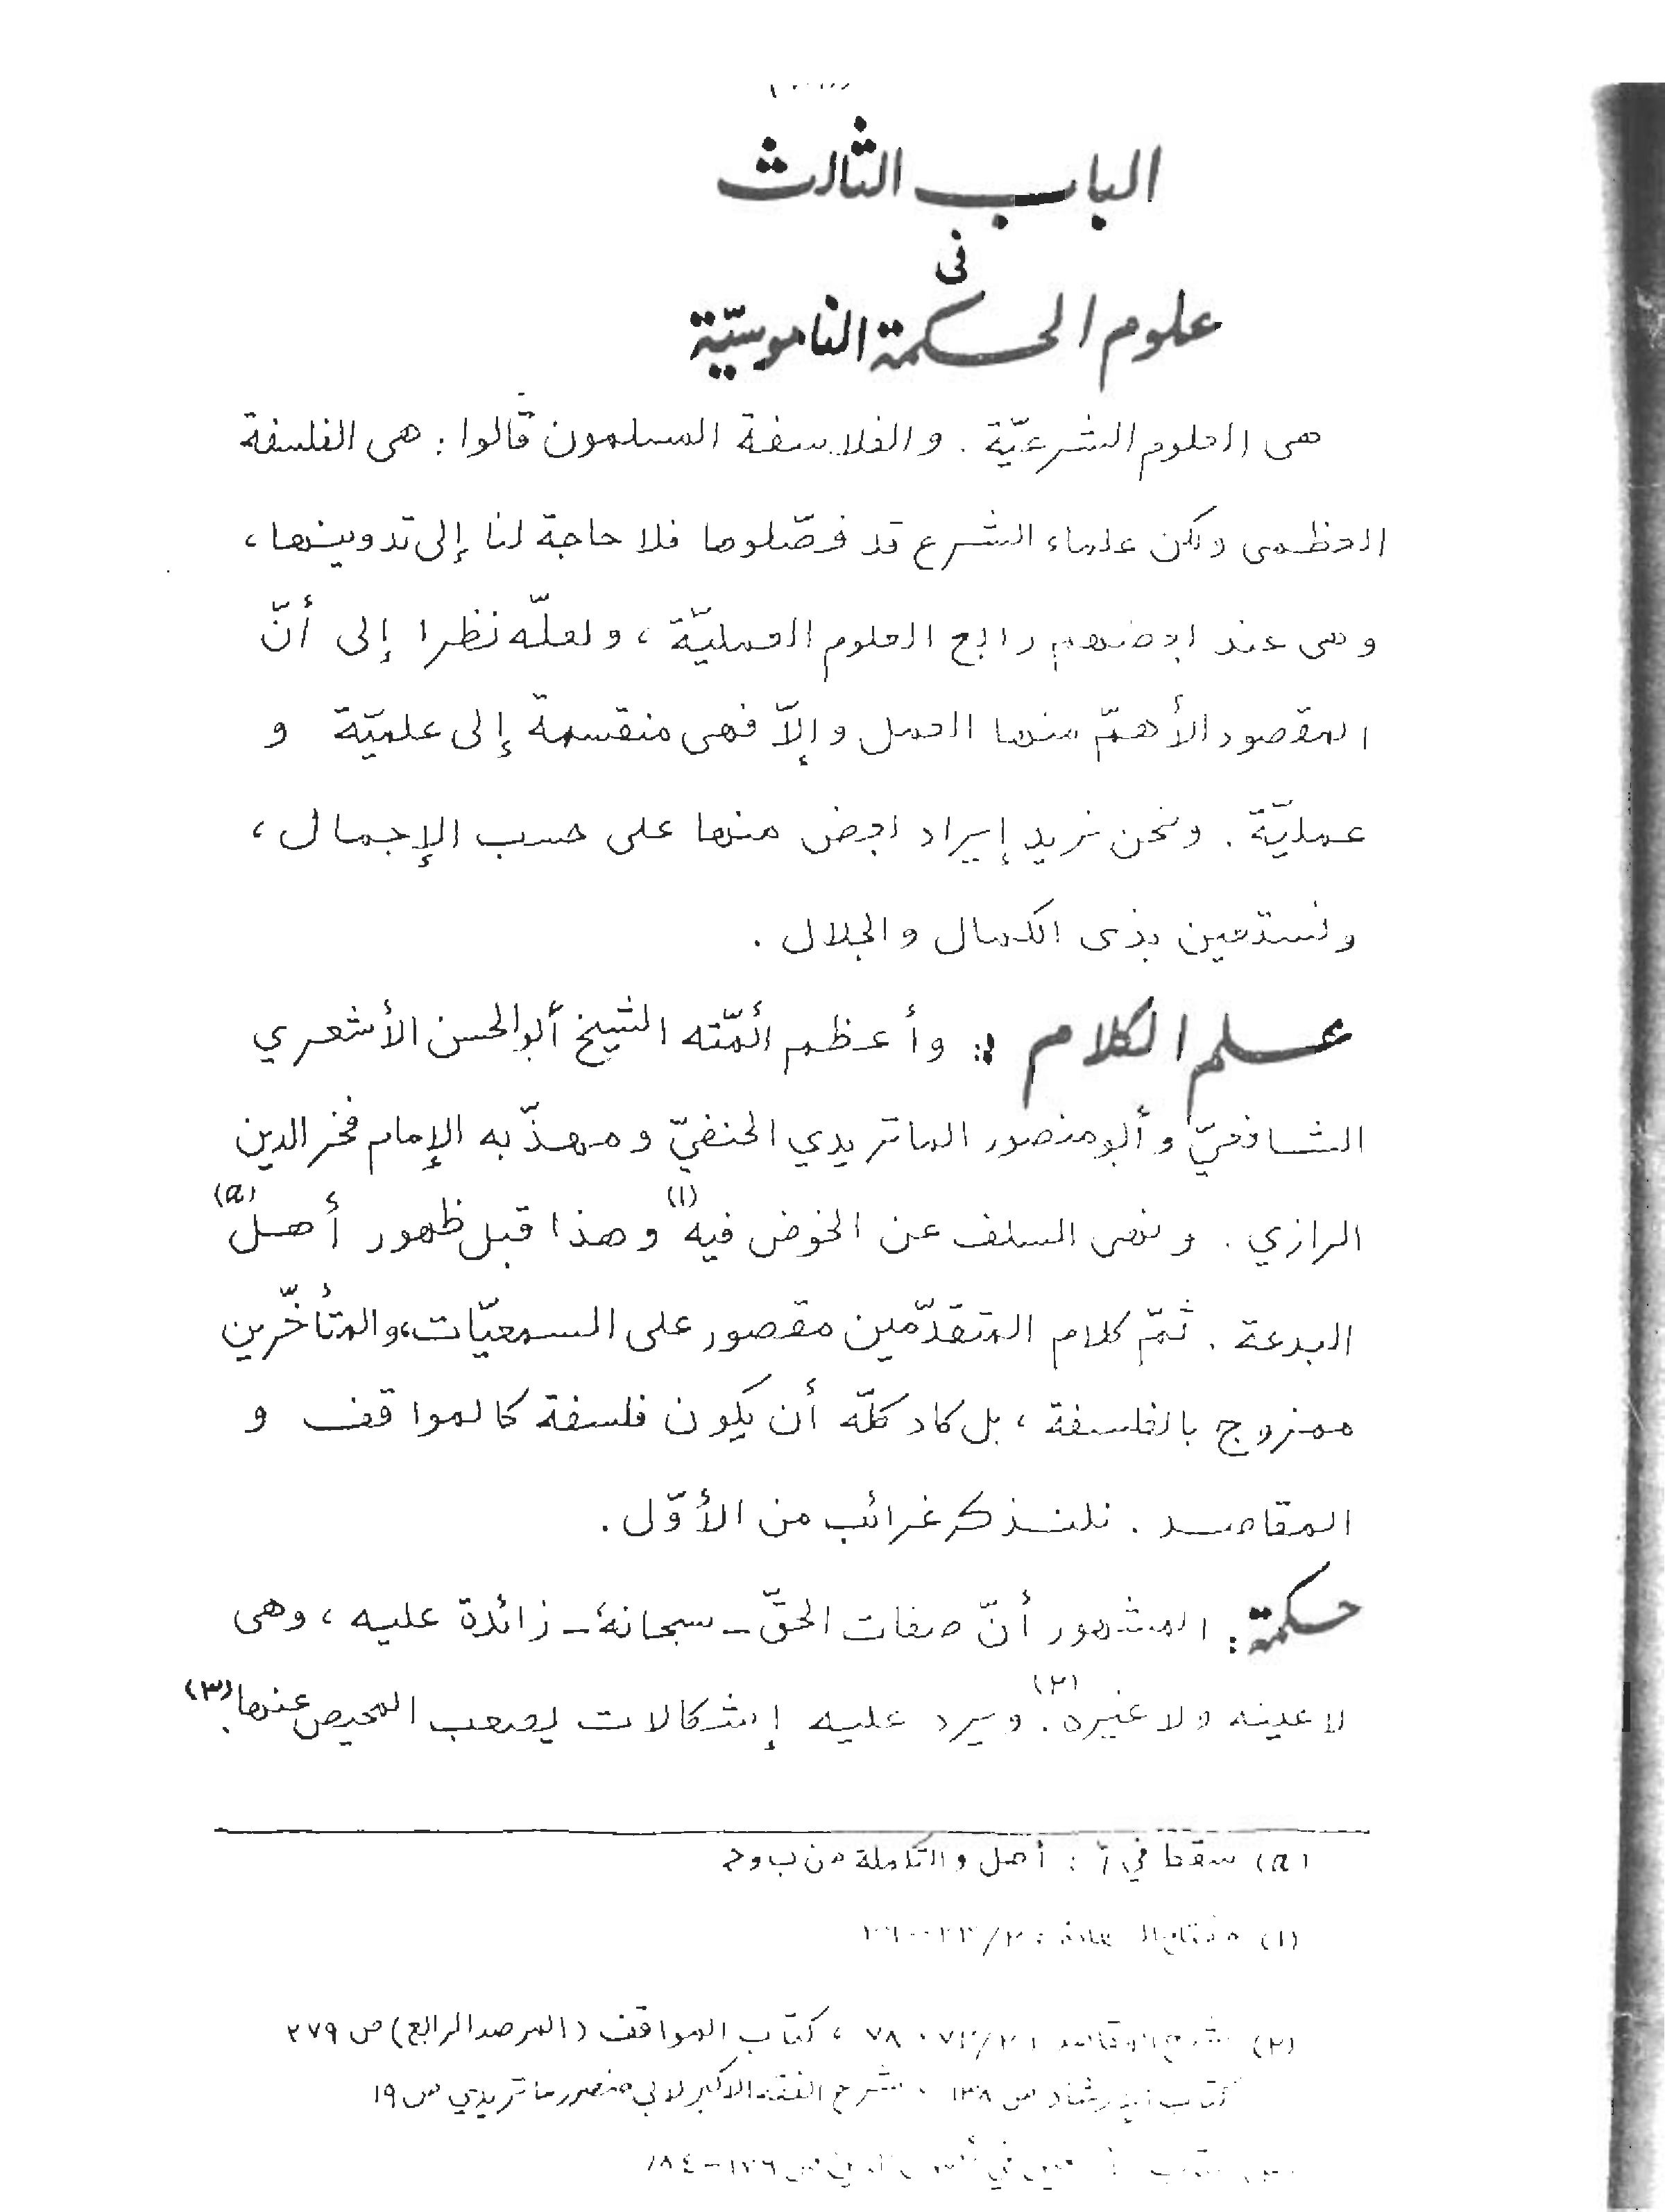 الباب الثالث
فى
علوم الحكمة الناموسيّة
هى العلوم الشرعيّة . والفلاسفة المسلمون قالوا : هى الفلسفة
العظمى ولكن علماء الشرع قد فصّلوها فلا حاجة لنا إلى تدوينها ،
وهى عند بعضهم رابع العلوم العمليّة ، ولعلّه نظرا إلى أنّ
المقصود الأهمّ منها العمل وإلاّ فهى منقسمة إلى علميّة و
عمليّة . ونحن نريد إيراد بعض منها على حسب الإجمال ،
ونستعين بذى الكمال والجلال .
علم الكلام :: وأعظم أئمّته الشيخ أبوالحسن الأشعري
الشافعيّ وأبومنصور الماتريدي الحنفيّ ومهذّبه الإمام فخرالدين
الرازي . ونهى السلف عن الخوض فيه (١) وهذا قبل ظهور أهل (a)
البدعة . ثمّ كلام المتقدّمين مقصور على السمعيّات، والمتأخّرين
ممزوج بالفلسفة ، بل كاد كلّه أن يكون فلسفة كالمواقف و
المقاصد . فلنذكر غرائب من الأوّل .
حكمة : المشهور أنّ صفات الحقّ - سبحانهُ - زائدة عليه ، وهى
لا عينه ولا غيره (٢) . ويرد عليه إشكالات يصعب المحيص عنها . (٣)
(a) سقط في آ : أهل والتكاملة من ب و ح
(١) مفتاح السعادة : ٢/
(٢) شرح المقاصد ٧٨ ، كتاب المواقف (المرصد الرابع) ص ٢٧٩
كتاب ابن رشد ص ١٣٨ ، شرح الفقه الاكبر لابي منصور ماتريدي ص ١٩
في ص ١٢٦ - ١٨٤